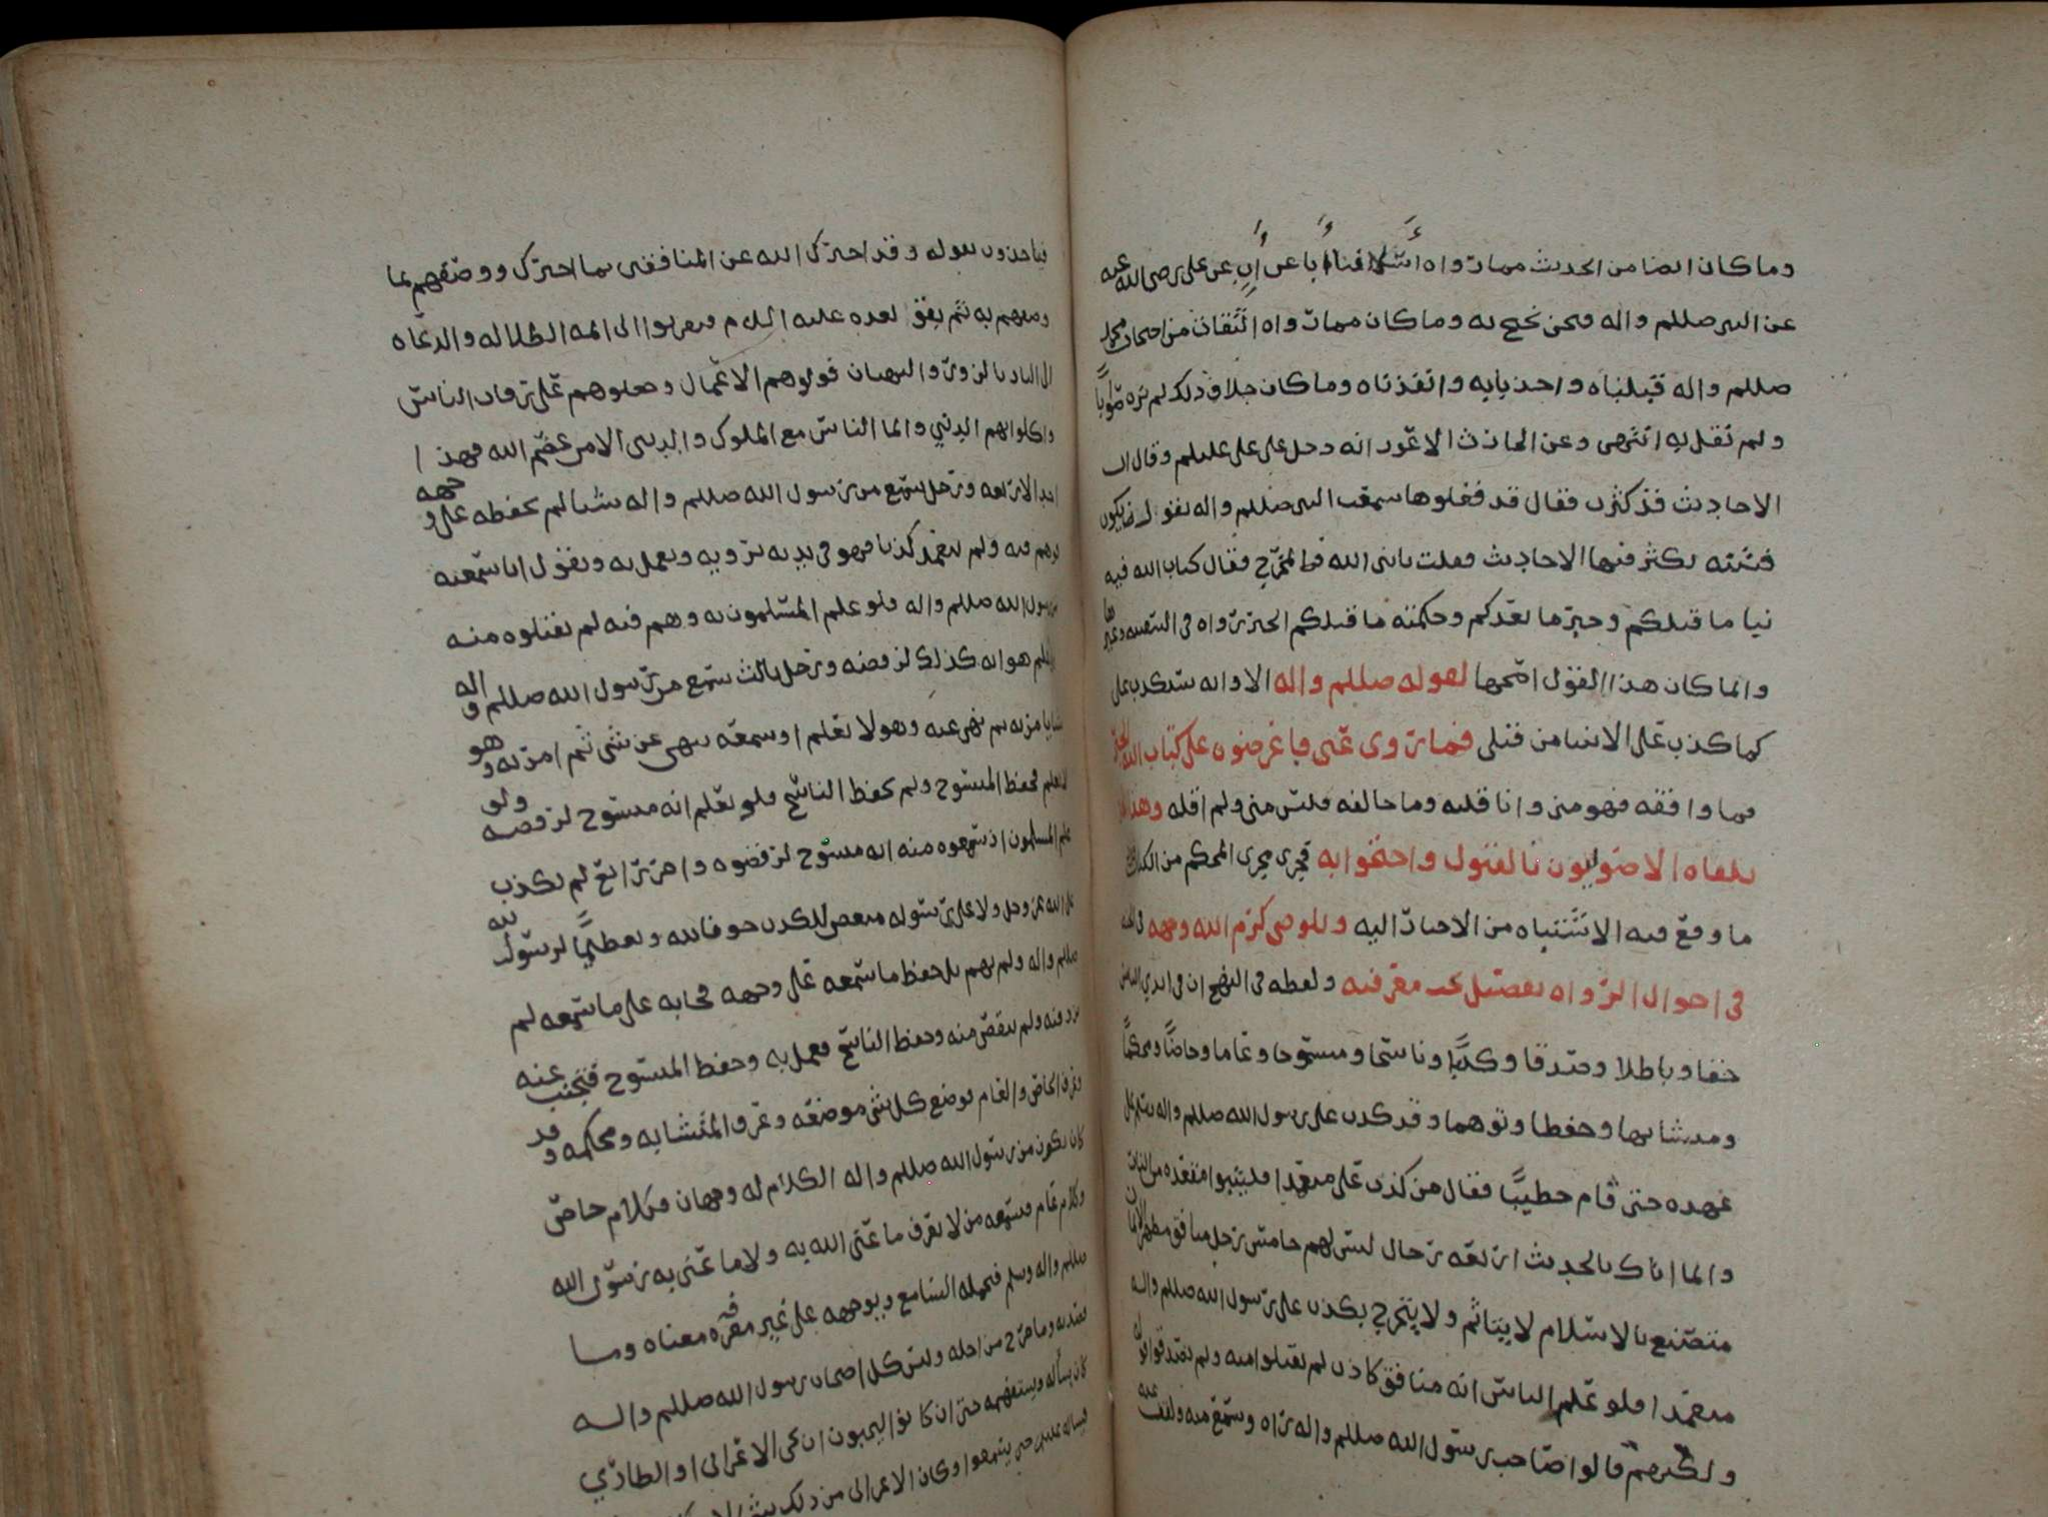 وما كان ايضا من الحديث مما رواه اسلافنا أبا عن أب عن علي رضي الله عنه
عن النبي صللم واله فنحن نحتج به وما كان مما رواه الثقات من اصحاب محمد
صللم واله قبلناه واخذنا به وانفذناه وما كان خلاف ذلك لم نره صوابا
ولم نقل به انتهى وعن الحارث الاعور انه دخل على علي عليلم وقال ان
الاحاديث قد كثرت فقال قد فعلوها سمعت النبي صللم واله يقول ستكون
فتنه تكثر فيها الاحاديث فقلت يا نبي الله فما المخرج فقال كتاب الله فيه
نبا ما قبلكم وخبر ما بعدكم وحكمته ما قبلكم الخبر رواه في وغيرها
وانما كان هذا القول اصحها لقوله صللم واله الا وانه سيكذب علي
كما كذب على الانبيا من قبلي فما روي عني فاعرضوه على كتاب الله
فما وافقه فهو مني وانا قلته وما خالفه فليس مني ولم اقله وهذا
تلقاه الاصوليون بالقبول واحتجوا به فجرى مجرى المحكم من الكتاب
ما وقع فيه الاشتباه من الاخبار اليه وللوصي كرم الله وجهه
في احوال الرواه تفصيل يجب معرفته ولفظه في النهج ان في ايدي الناس
حقا وباطلا وصدقا وكذبا وناسخا ومنسوخا وعاما وخاصا ومحكما
ومتشابها وحفظا وتوهما وقد كذب على رسول الله صللم واله وسلم على
عهده حتى قام خطيبا فقال من كذب علي متعمدا فليتبوا مقعده من النار
وانما اتاك بالحديث اربعه رجال ليس لهم خامس رجل منافق مظهر للايمان
متصنع بالاسلام لا يتاثم ولا يتحرج يكذب على رسول الله صللم واله
متعمدا فلو علم الناس انه منافق كاذب لم يقبلوا منه ولم يصدقوا قوله
ولكنهم قالوا صاحب رسول الله صللم واله راه وسمع منه ولقف عنه
فياخذون بقوله وقد اخبرك الله عن المنافقين بما اخبرك ووصفهم بما
وصفهم به ثم بقوا بعده عليه السلام فتقربوا الى ائمه الضلاله والدعاه
الى النار بالزور والبهتان فولوهم الاعمال وجعلوهم على رقاب الناس
واكلوا بهم الدنيا وانما الناس مع الملوك والدنيا الا من عصم الله فهذا
احد الاربعه ورجل سمع من رسول الله صللم واله شيا لم يحفظه على وجهه
فوهم فيه ولم يتعمد كذبا فهو في يديه يرويه ويعمل به ويقول انا سمعته
من رسول الله صللم واله فلو علم المسلمون به وهم فيه لم يقبلوه منه
ولو علم هو انه كذلك لرفضه ورجل ثالث سمع من رسول الله صللم واله
شيا يامر به ثم نهى عنه وهو لا يعلم او سمعه ينهى عن شي ثم امر به وهو
لا يعلم فحفظ المنسوخ ولم يحفظ الناسخ فلو يعلم انه منسوخ لرفضه ولو
علم المسلمون اذ سمعوه منه انه منسوخ لرفضوه واخر رابع لم يكذب
على الله عز وجل ولا على رسوله مبغض للكذب خوفا لله وتعظيما لرسول الله
صللم واله ولم يهم بل حفظ ما سمعه على وجهه فجا به على ما سمعه لم
يزد فيه ولم ينقص منه وحفظ الناسخ فعمل به وحفظ المنسوخ فتجنب عنه
وعرف الخاص والعام فوضع كل شي موضعه وعرف المتشابه ومحكمه وقد
كان يكون من رسول الله صللم واله الكلام له وجهان فكلام خاص
وكلام عام فيسمعه من لا يعرف ما عنى الله به ولا ما عنى به رسول الله
صللم واله وسلم فيحمله السامع ويوجهه على غير معرفه معناه وما
قصد به وما خرج من اجله وليس كل اصحاب رسول الله صللم واله
كان يسأله ويستفهمه حتى ان كانوا ليحبون ان يجي الاعرابي او الطاري
فيساله عليلم حتى يسمعوا وكان الاعرابي من ذلك